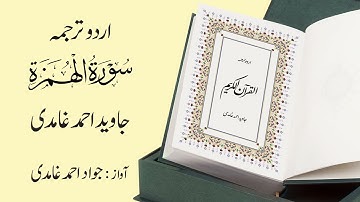 اردو ترجمہ
سُورَةُ الْهُمَزَة
جاوید احمد غامدی
آواز : جواد احمد غامدی
اردو ترجمہ
القرآن الکریم
جاوید احمد غامدی